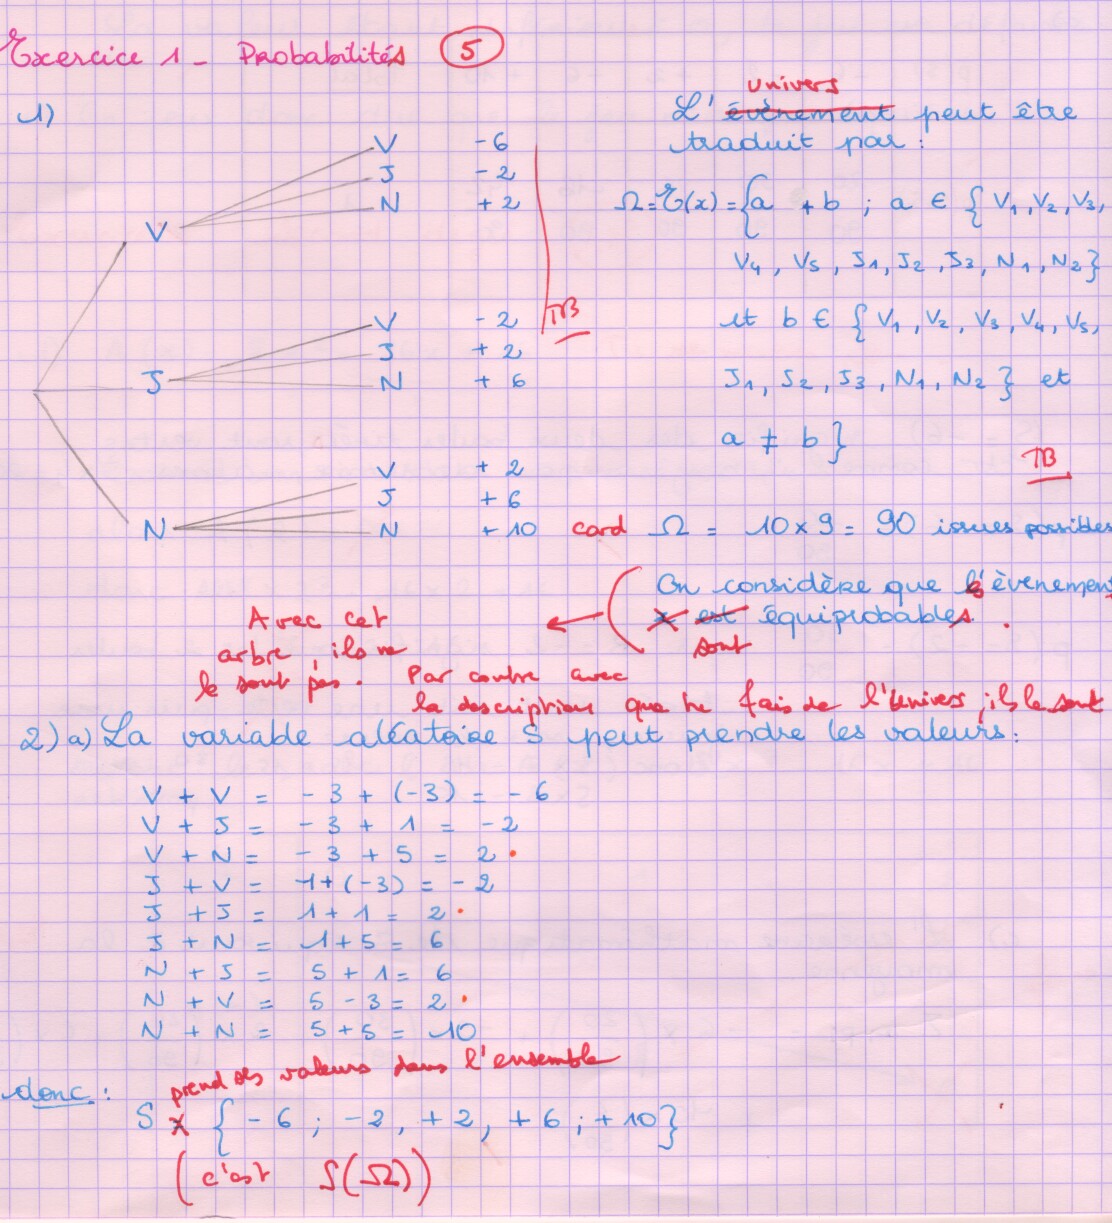 Exercice 1 - Probabilités 5
1)
univers
L'évènement peut être
traduit par :
V -6
J -2
N +2
V
V -2
J +2
N +6
J
V +2
J +6
N +10
N
TB
Ω = E(x) = {a + b ; a ∈ { V1, V2, V3,
V4, V5, J1, J2, J3, N1, N2}
et b ∈ { V1, V2, V3, V4, V5,
J1, J2, J3, N1, N2 } et
a ≠ b }
TB
card Ω = 10 x 9 = 90 issues possibles
On considère que l'évènement
x est équiprobables.
sont
Avec cet
arbre, ils ne
le sont pas. Par contre avec
la description que tu fais de l'univers, ils le sont
2) a) La variable aléatoire S peut prendre les valeurs :
V + V = -3 + (-3) = -6
V + J = -3 + 1 = -2
V + N = -3 + 5 = 2
J + V = 1+(-3) = -2
J + J = 1 + 1 = 2
J + N = 1+5 = 6
N + J = 5 + 1 = 6
N + V = 5 - 3 = 2
N + N = 5+5 = 10
prend ses valeurs dans l'ensemble
donc :
S { -6 ; -2, +2, +6 ; +10}
(c'est S(Ω))